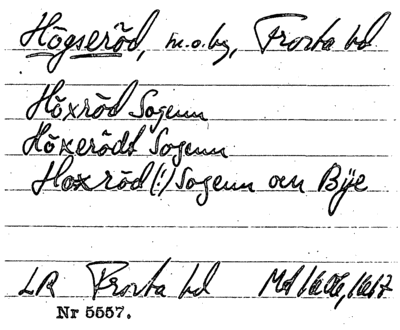 Högseröd, sn. o. by, Frosta hd
Höxröd Sogenn
Höxerödt Sogenn
Hoxröd (!) Sogenn ocn Bÿe
LR Frosta hd Ml 1606, 1617
Nr 5557.